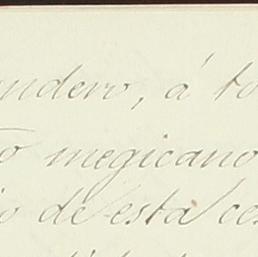 ndero, á to
o megicano
io de esta ces